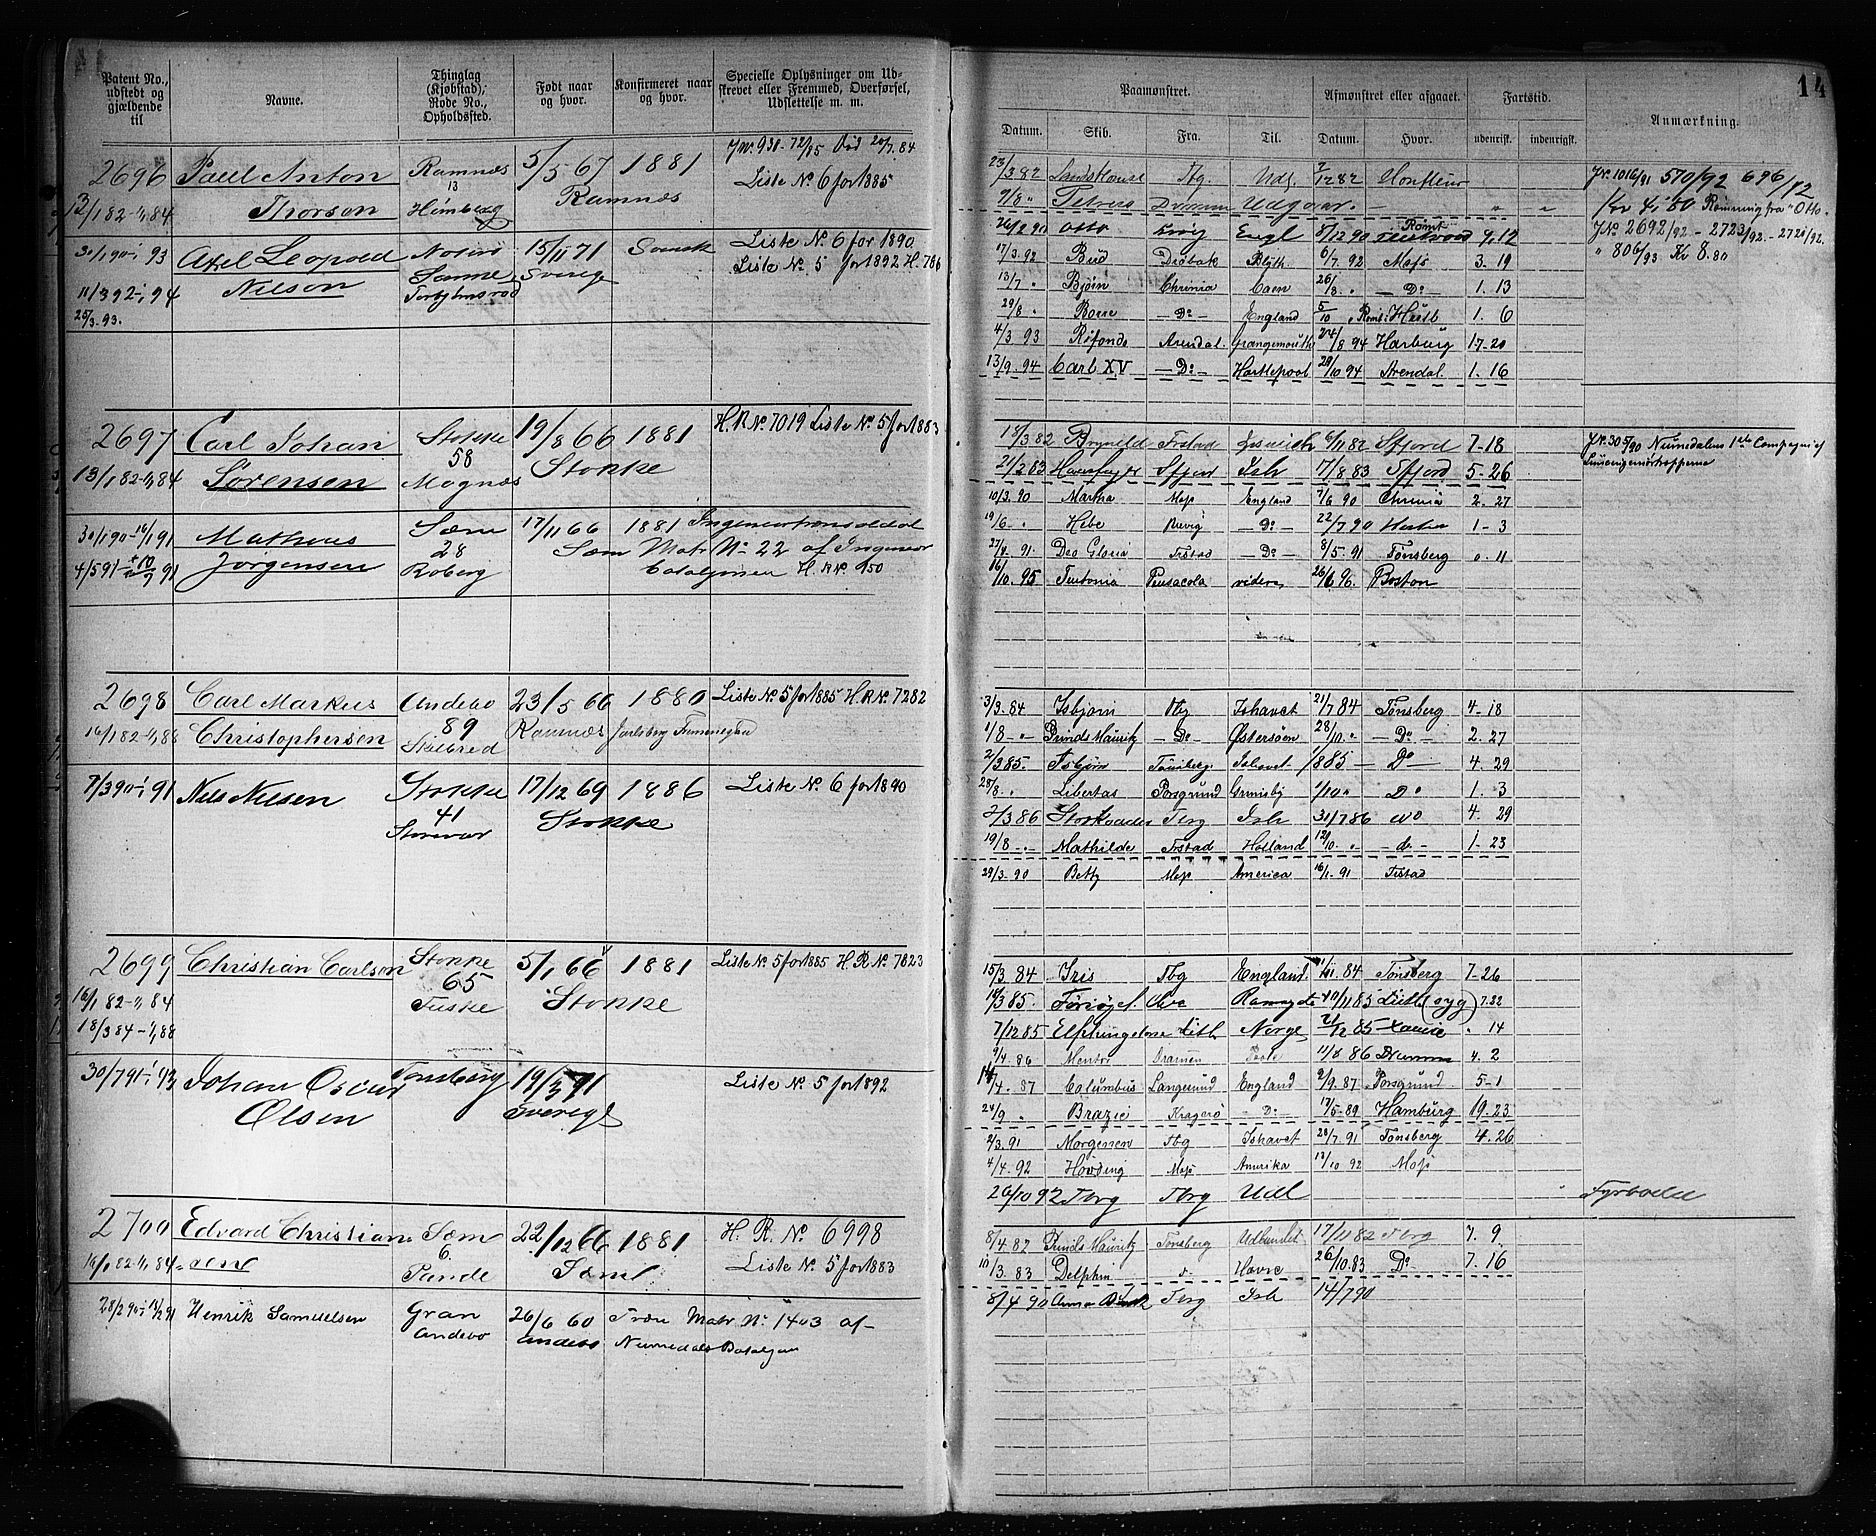 14
Patent No., udstedt og gjældende til
Navne.
Thinglag (Kjøbstad), Rode No., Opholdsfted.
Født naar og hvor.
Konfirmeret naar og hvor.
Specielle Oplysninger om Udskrevet eller Fremmed, Overførsel, Udslettelse m. m.
Paamønstret.
Afmønstret eller afgaaet.
Fartstid.
Anmærkning.
Datum. Skib. Fra. Til. Datum. Hvor. udenrigsk. indenrigsk.
2696 Paul Anton Ramnæs 5/5 67 1881 J No 938-72/85 Død 20/7 84
13 Liste No 6 for 1885
Thorsen Himberg Ramnæs
30/1 90-1/1 93 Axel Leopold Noterø 15/11 71 Svensk Liste No 6 for 1890
Nilson Sverige Liste No 5 for 1892 H. 786
11/3 92-1/1 94
25/3-93.
23/3 82 Tbg. Udl. 12 82 Honfleur
9/8 " Drammen
26/2 90 Otto Engl 8/12 90 Rømt 9.12
17/3.92 Bud Drøbak Blyth 6/7.92 Moss 3.19
13/7 " Bjørn Chrinia Caen 26/8. " - Do - 1.13
29/8 " - Do - England 5/10 1.6
4/3 93 Arendal. Grangemouth 24/8 94 Harburg 17-20
13/9.94 Carl XV - Do - Hartlepool 29/10 94 Arendal. 1.16
J No 1016/91 570/92 696/92
Kr 4,80 Rømning fra "Otto.
J No 2692/92 - 2723/92. - 2728/92.
" 806/93 Kr 8.80
2697 Carl Johan Stokke 19/8 66 1881 H. R No 7019 Liste No 5 for 1883
58
13/1 82-1/1 84 Sørensen Magnæs Stokke
30/1 90-16/1 91 Matheus Sæm 17/11 66 1881
28 Sæm Matr No 22 af Ingeniør
4/5 91 Jørgensen Roberg Bataljonen H. R No 950
18/3 82 Brynild Frstad 6/11 82 Sfjord 7-18
21/2 83 Sfjord Ish 17/8 83 Sfjord 5-26
10/3. 90 Martha Moss England 7/6 90 Chrinia 2.27
19/6 - " Hebe - Do - 22/7 90 1-3
27/2 91. Deo Gloria Frstad - Do - 8/5.91 Tønsberg 0.11
16/10. 95 Teutonia Pensacola videre 26/6 96. Boston
J No 305/90 Numedalens 1ste Compagni af
2698 Carl Markus Andebo 23/5 66 1880 Liste No 5 for 1885 H. R No 7282
89
16/1 82-1/1 88 Christophersen Ramnæs Jarlsberg
7/3 90-1/1 91 Nils Nilsen Stokke 17/12 69 1886 Liste No 6 for 1890
41
Stokke
3/3. 84 Isbjørn Tbg Ishavet 21/7 84 Tønsberg 4-18
1/8 - " Prinds Mauritz - Do - Østersøen 28/10. " - Do - 2.27
2/3 85. Isbjørn Tønsberg. Ishavet 1/8 85 - Do - 4.29
28/8. " Libertas Porsgrund Grimsby 1/10 " Do 1.3
2/3 86 Tbrg Ish 31/7 86 4.29
19/8 - " Mathilde Frstad Holland 12/10. " - do - 1-23
29/3-90 Betty Moss America 16/1-91 Frstad
2699 Christian Carlsen Stokke 5/1 66 1881 Liste No 5 for 1885 H. R. No. 7023
65
16/1 82-1/1 84 Stokke
18/3 84-1/1 88
30/7 91-1/1 93 Johan Oscar Tønsberg 19/3 71 Liste No. 5 for 1892
Olsen Sverige
15/3. 84 Iris Tbg England. 11/11. 84 Tønsberg 7-26
18/3 85. (syg) 7.22
7/12 85 Elphingstone Norge 21/12 85 14
9/4. 86 Mentor Dramen Poole 11/8 86 Drammen 4.2
4. 87 Columbus Langesund England 2/9.87 Porsgrund 5-1
24/9 " Brazei Kragerø - Do - 17/5-89 Hamburg 19.23
2/3. 91 Morgenen Tbg Ishavet 28/7.91 Tønsberg 4.26
4/4. 92 Høvding Moss Amerika 12/10 92 Moss
26/10 92 Tbrg Udl Fyrbøder
2700 Edvard Christian Sæm 22/12 66 1881 H. R. No 6998
6.
16/1 82-1/1 84 Pande Sæm Liste No 5 for 1883
28/2 90-12/2 91 Henrik Samuelsen Gran 26/6 60 Træn Matr No 1403 af
Andebo Andebo Numedals Bataljon
8/4.82 Prinds Mauritz Tønsberg Udlandet 17/11 82 Tbrg 7. 9
10/3. 83 Delphin Havre 26/10.83 Do 7.16
8/4 90 Anna Tbrg Ish 14/7 90